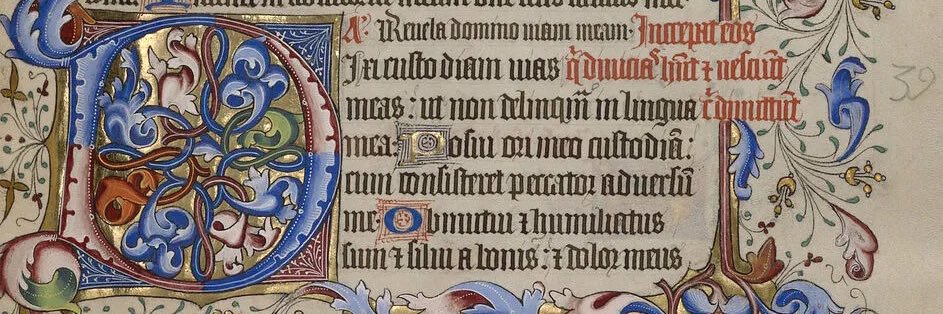 A. Reuela domino uiam meam. Increpat eos
Dixi custodiam uias qͥ diuicias hn̄t ⁊ nesciūt
meas : ut non delinquā in lingua cͥ dimittūt
mea. Posui ori meo custodiā :
cum consisteret peccator aduersū
me. Obmutui ⁊ humiliatus
sum ⁊ silui a bonis : ⁊ dolor meus
39